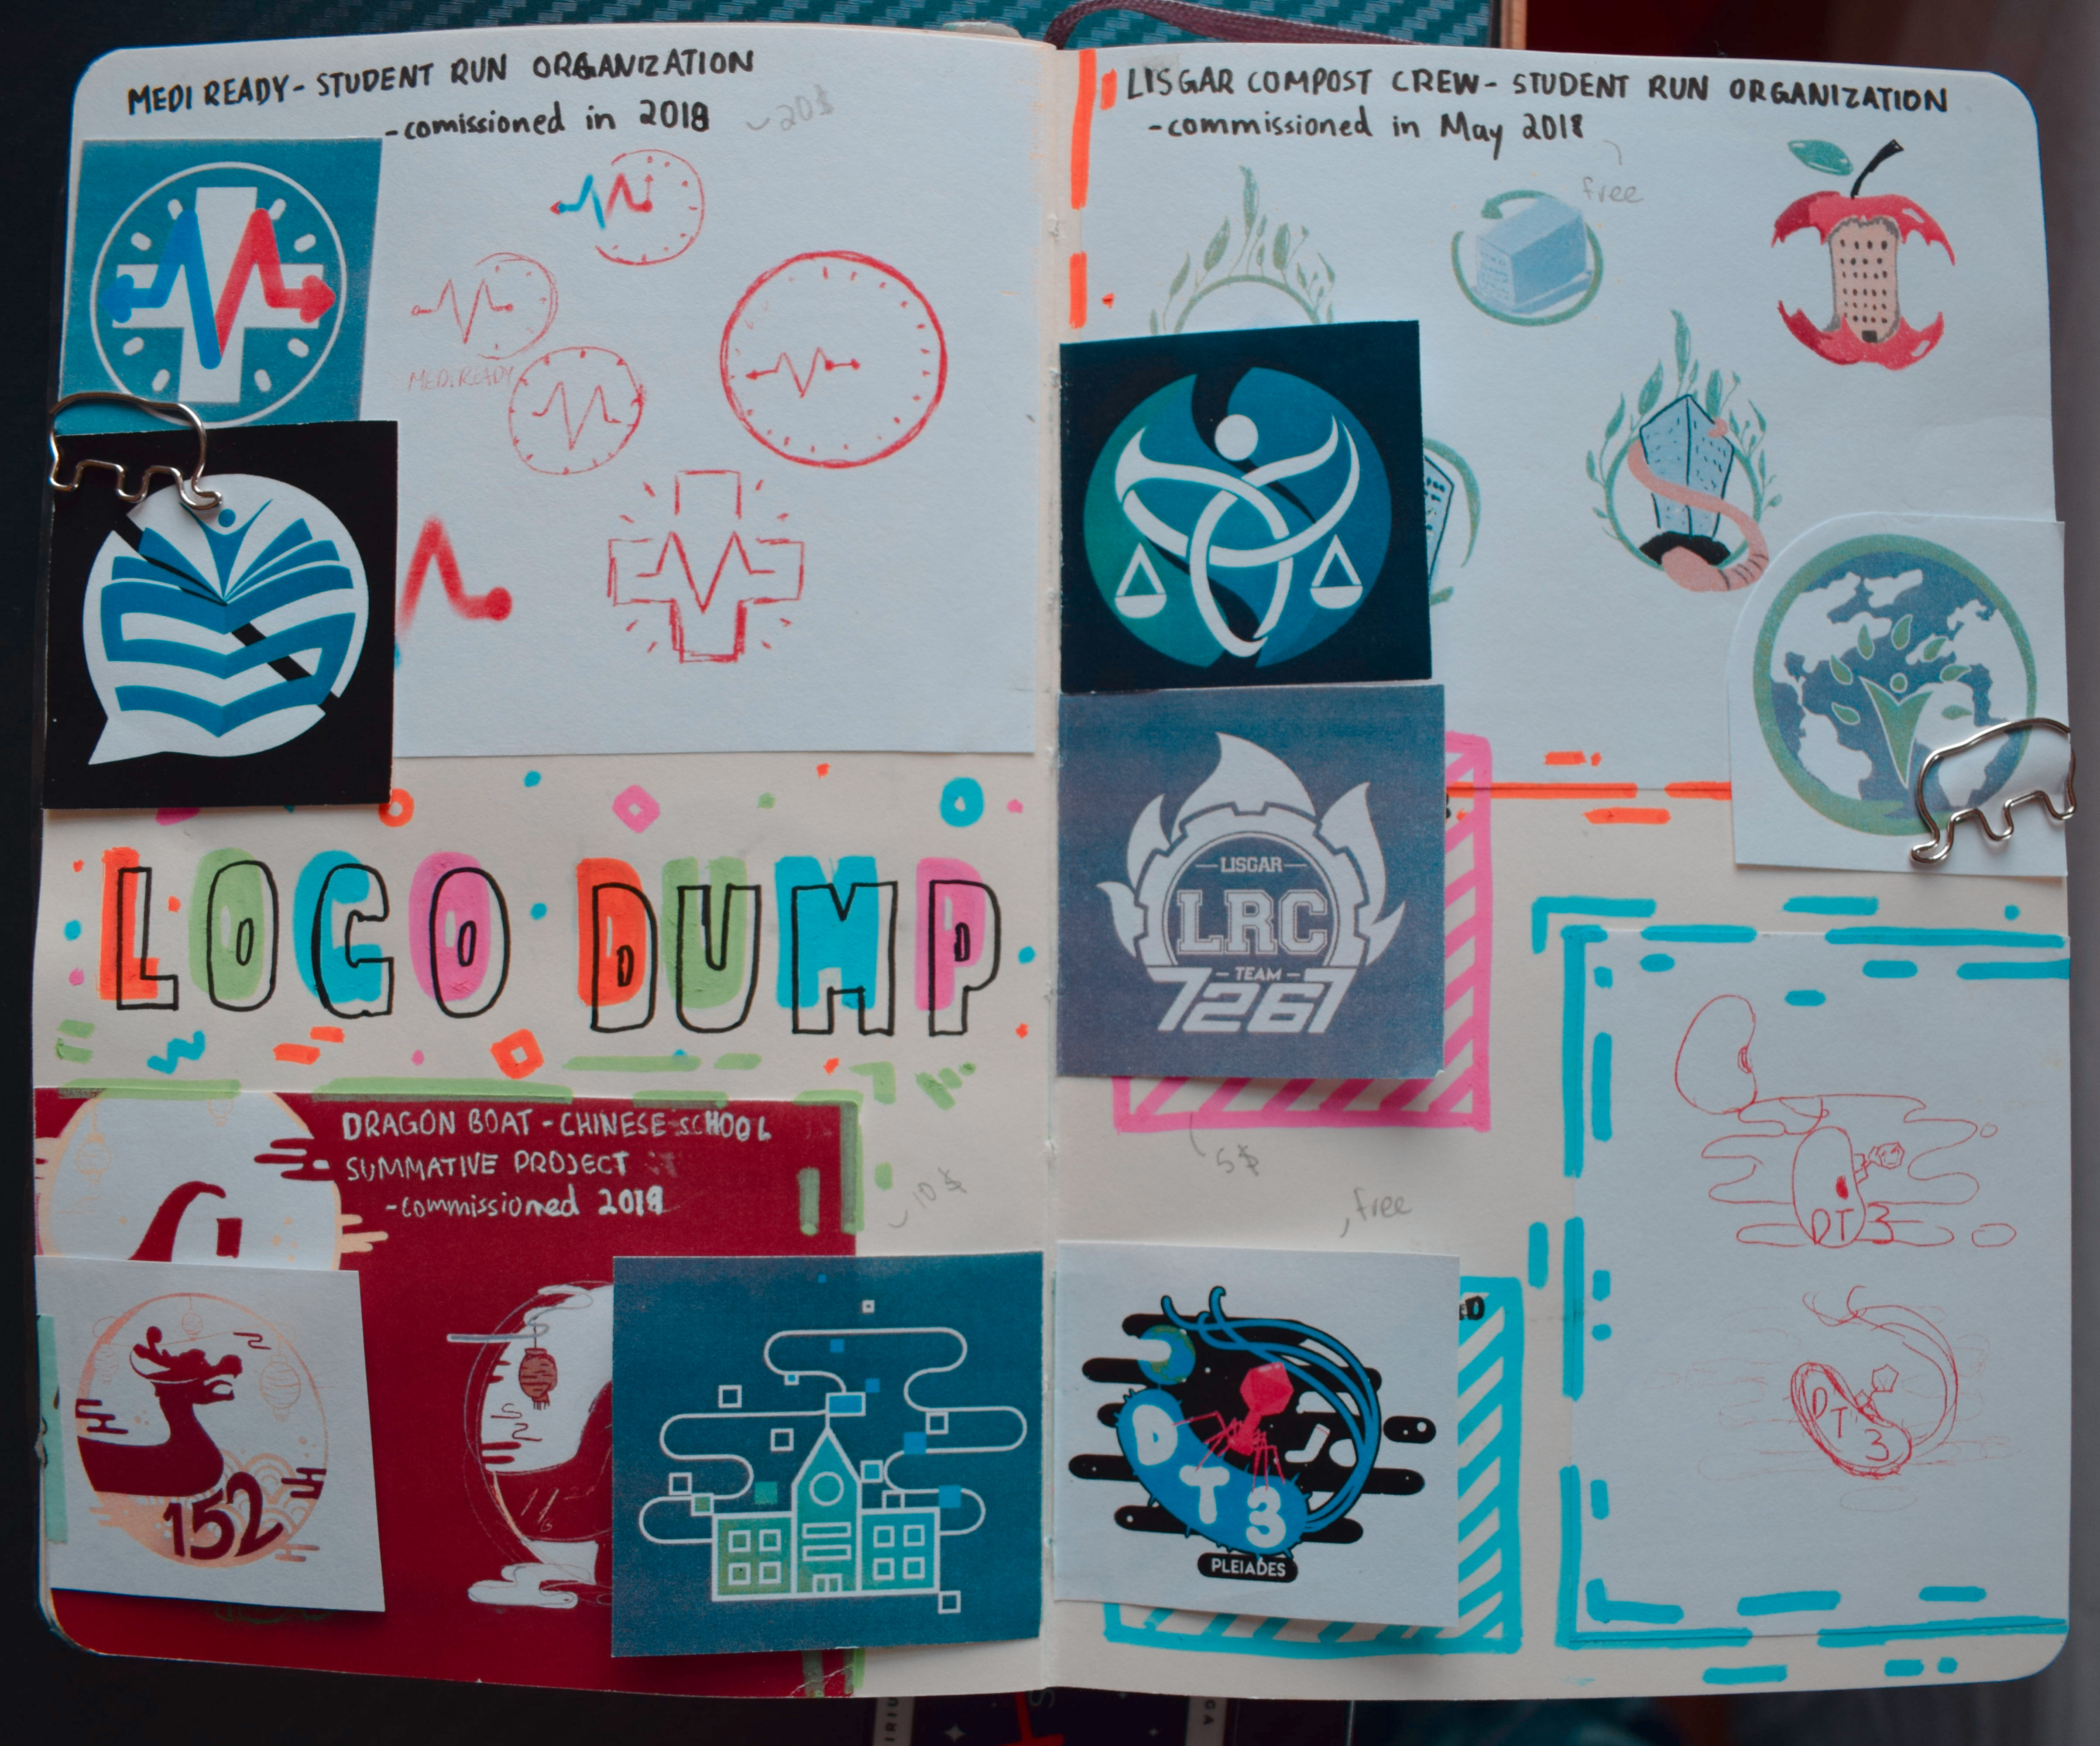 MEDI READY - STUDENT RUN ORGANIZATION
- comissioned in 2018
20$
MEDIREADY
LOGO DUMP
DRAGON BOAT - CHINESE SCHOOL
SUMMATIVE PROJECT
- commissioned 2018
10$
152
LISGAR COMPOST CREW - STUDENT RUN ORGANIZATION
- commissioned in May 2018
free
LISGAR
LRC
TEAM
7267
5$
free
DT3
PLEIADES
DT3
DT3